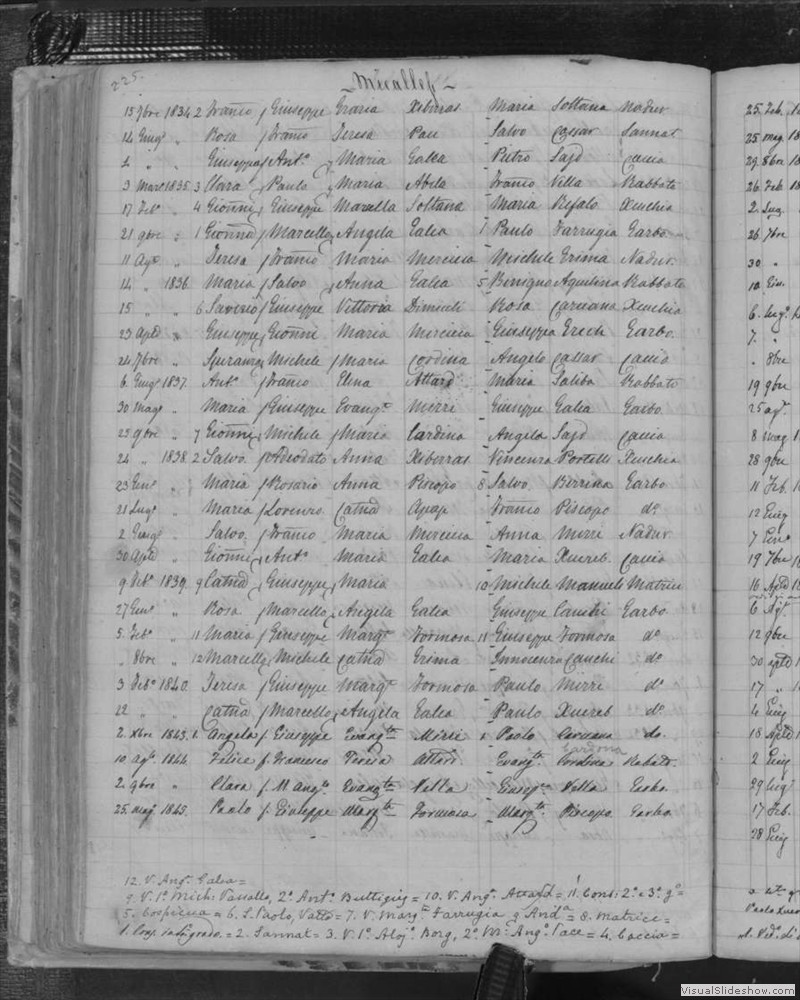 225.
Micallef
15 9bre 1834 2 Franco / Giuseppe Grazia Xiberras Maria Soltana Nadur
14 Giugo " Rosa / Franco Teresa Pace Salvo Cassar Sannat
4 " " Giuseppa / Anto Maria Galea Pietro Sajd Caccia
3 Marzo 1835 3 Clara / Paulo Maria Abela Franco Villa Rabbato
17 Febo " 4 Gionni / Giuseppe Marzella Soltana Maria Refalo Xeuchia
21 9bre " 1 Gionna / Marcello Angela Galea 1 Paulo Farrugia Garbo
11 Ago " Teresa / Franco Maria Mercieca Michele Grima Nadur
14 " 1836 Maria / Salvo Anna Galea 5 Benigno Aquilina Rabbato
15 " " 6 Saverio / Giuseppe Vittoria Dimech Rosa Caruana Xeuchia
23 Aple " Giuseppe / Gionni Maria Mercieca Giuseppa Grech Garbo
24 7bre " Speranza / Michele Maria Cordina Angelo Cassar Caccia
6 Giugo 1837 Anto / Franco Elena Attard Maria Saliba Rabbato
30 Mago " Maria / Giuseppe Evangta Mizzi Giuseppe Galea Garbo
23 9bre " 7 Gionni / Michele Maria Cardina Angela Sajd Caccia
24 " 1838 2 Salvo / Adeodato Anna Xiberras Vincenza Portelli Xeuchia
23 Geno " Maria / Rosario Anna Piscopo 8 Salvo Garbo
21 Lugo " Maria / Lorenzo Catna Agap Franco Piscopo do
2 Giugo " Salvo / Franco Maria Mercieca Anna Mizzi Nadur
30 Aple " Gionni / Anto Maria Galea Maria Xuereb Caccia
9 Febo 1839 9 Catna / Giuseppe Maria 10 Michele Manueli Matrice
27 Geno " Rosa / Marcello Angela Galea Giuseppe Cauchi Garbo
5 Febo " 11 Maria / Giuseppe Margta Formosa 11 Giuseppe Formosa do
" 8bre " 12 Marcello / Michele Catna Grima Innocenza Cauchi do
3 Febo 1840 Teresa / Giuseppe Margta Formosa Paulo Mizzi do
22 " " Catna / Marcello Angela Galea Paulo Xuereb do
2 Xbre 1843 1. Angela / Giuseppe Evangta Mizzi 1 Paolo Caruana do
Cardona
10 ago 1844 Felice / Francesco Teresa Attard Evangta Cordina Rabato
2 9bre " Clara / Mangto Evangta Vella Giuspe Vella Garbo
25 mago 1845 Paolo / Giuseppe Margta Formosa Margta Piscopo Garbo
12. V. Ango Galea =
9. V. 1o Mich: Vassallo, 2o Anto Buttigieg = 10. V. Ango Attard = 11. Cons: 2o e 3o go =
5. Cospicua = 6. S. Paolo, Valta = 7. V. Margta Farrugia = 8. Matrice =
2. Sannat = 3. V. 1o Borg, 2o Ango Pace = 4. Caccia =
25 Feb.
25 mag
29 8bre
26 Feb
2 Lug.
26 7bre
30 "
10
6 Lug
7. "
" 8bre
19 9bre
25 ag
8 mag
28 9bre
11 Feb.
12 Giug
7 Gen
19 7bre
16 Aple
6 Ag
12 9bre
30 aple
17 "
4 Giug
18 Aple
2 Giug
29 Lug
17 Feb.
28 Giug
VisualSlideshow.com